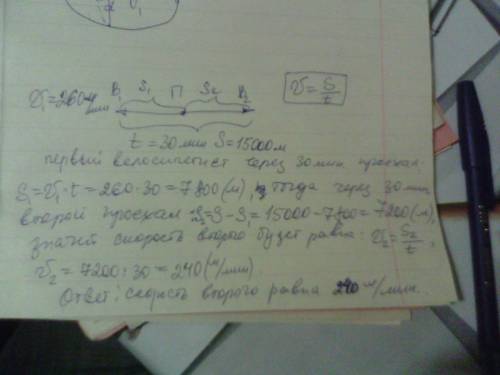 V₁
V₁=260 м/мин B₁ S₁ П S₂ B₂ V=S/t
t=30 мин S=15000 м
первый велосипедист через 30 мин проехал
S₁=V₁·t=260·30=7800 (м), тогда через 30 мин
второй проехал S₂=S-S₁=15000-7800=7200 (м),
значит скорость второго будет равна: V₂=S₂/t,
V₂=7200:30=240 (м/мин)
Ответ: скорость второго равна 240 м/мин.